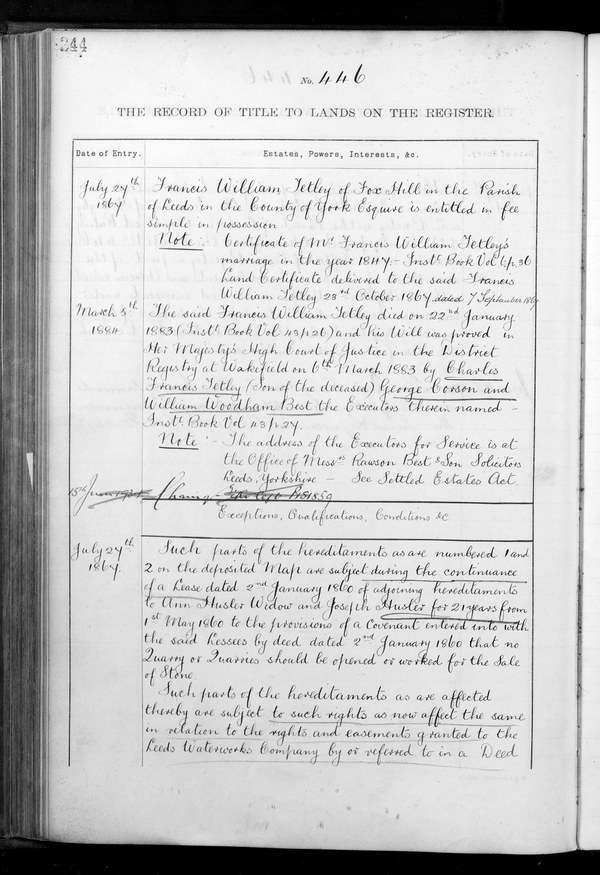 244
No. 446
THE RECORD OF TITLE TO LANDS ON THE REGISTER.
Date of Entry. Estates, Powers, Interests, &c.
July 27th 1867 Francis William Tetley of Fox Hill in the Parish
of Leeds in the County of York Esquire is entitled in fee
simple in possession
Note: Certificate of Mr Francis William Tetley's
marriage in the year 1847 - Instt Book Vol 6 p. 36
Land Certificate delivered to the said Francis
William Tetley 23rd October 1867 dated 7 September 1867
March 5th 1884 The said Francis William Tetley died on 22nd January
1883 (Instt Book Vol 43 p 26) and his Will was proved in
Her Majesty's High Court of Justice in the District
Registry at Wakefield on 6th March 1883 by Charles
Francis Tetley (Son of the deceased) George Corson and
William Woodham Best the Executors therein named -
Instt Book Vol 43 p 27.
Note: - The address of the Executors for Service is at
the Office of Messrs Rawson Best & Son Solicitors
Leeds, Yorkshire - See Settled Estates Act.
15th
Exceptions, Qualifications, Conditions &c
July 27th 1867. Such parts of the hereditaments as are numbered 1 and
2 on the deposited Map are subject during the continuance
of a Lease dated 2nd January 1860 of adjoining hereditaments
to Ann Husler Widow and Joseph Husler for 21 years from
1st May 1860 to the provisions of a Covenant entered into with
the said Lessees by deed dated 2nd January 1860 that no
Quarry or Quarries should be opened or worked for the Sale
of Stone.
Such parts of the hereditaments as are affected
thereby are subject to such rights as now affect the same
in relation to the rights and easements granted to the
Leeds Waterworks Company by or referred to in a Deed